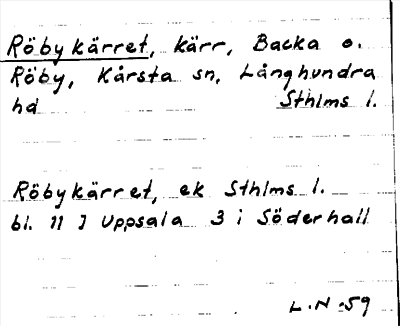 Röbykärret, kärr, Backa o.
Röby, Kårsta sn, Långhundra
hd Sthlms l.
Röbykärret, ek Sthlms l.
bl. 11 J Uppsala 3 i Söderhall
L.N.59